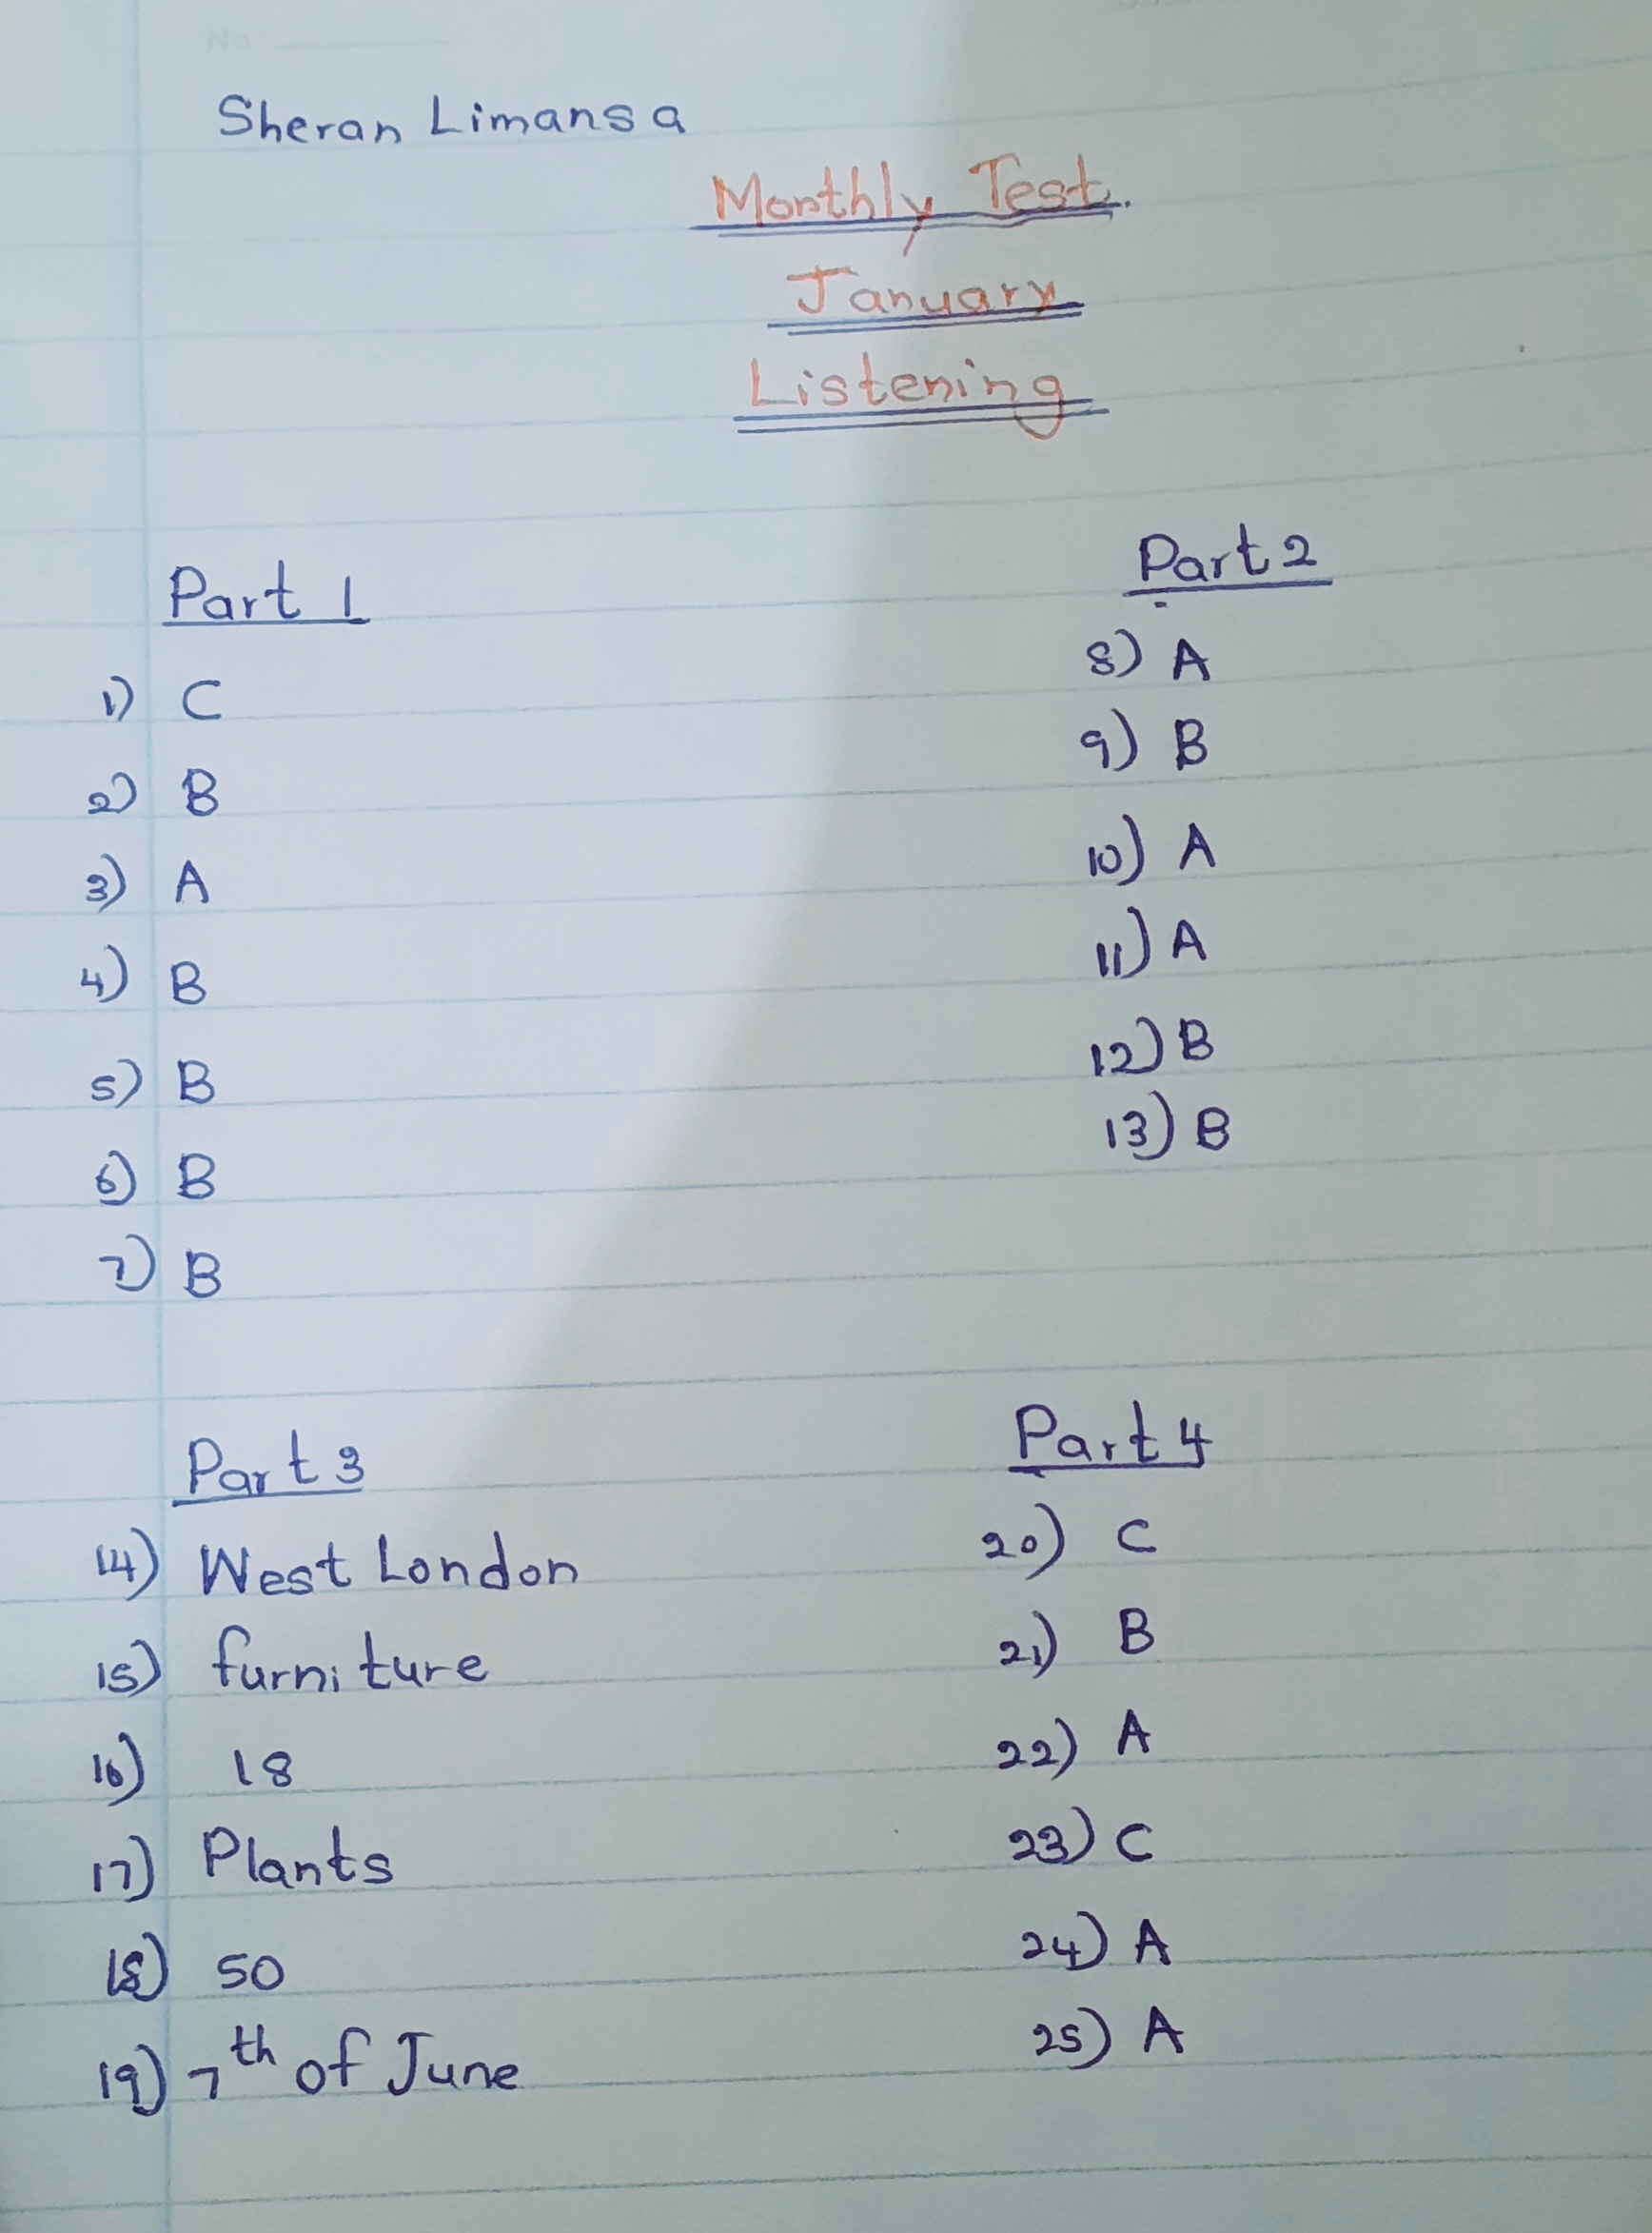 No :
Sheran Limansa
Monthly Test.
January
Listening
Part 1
1) C
2) B
3) A
4) B
5) B
6) B
7) B
Part 2
8) A
9) B
10) A
11) A
12) B
13) B
Part 3
14) West London
15) furniture
16) 18
17) Plants
18) 50
19) 7th of June
Part 4
20) C
21) B
22) A
23) C
24) A
25) A